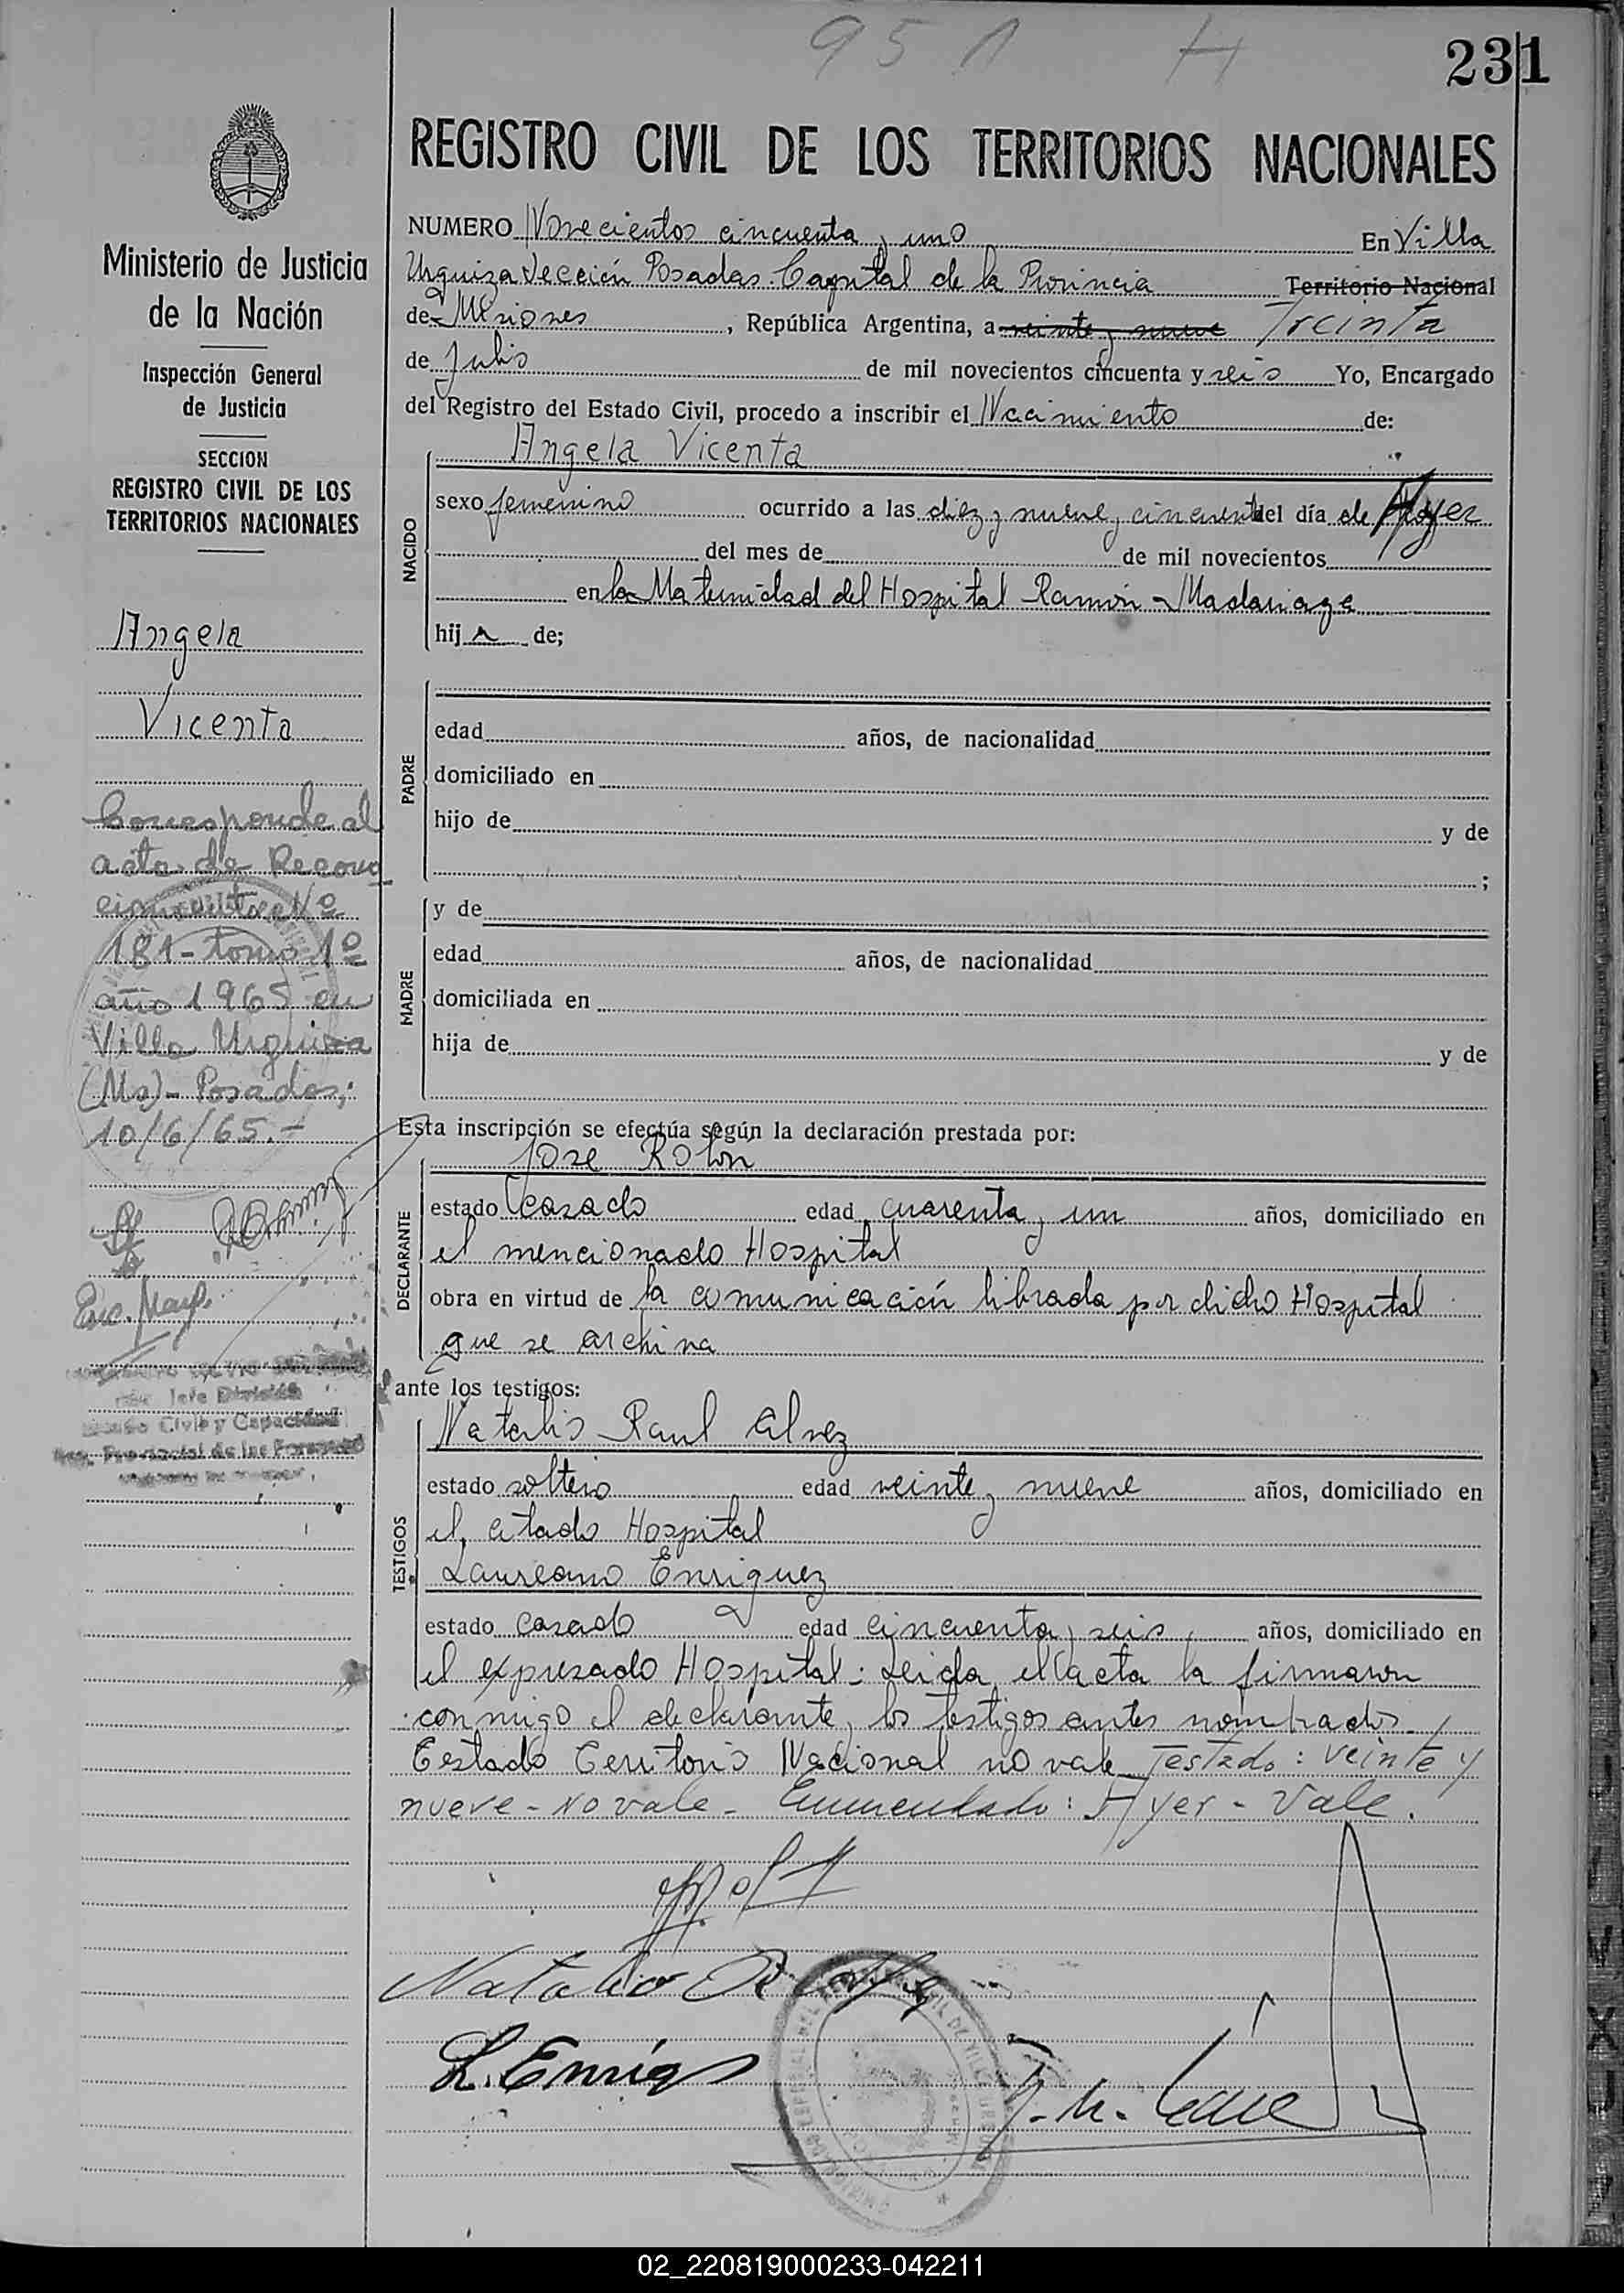 951 H
231
REGISTRO CIVIL DE LOS TERRITORIOS NACIONALES
Ministerio de Justicia
de la Nación
Inspección General
de Justicia
SECCION
REGISTRO CIVIL DE LOS
TERRITORIOS NACIONALES
Angela
Vicenta
Corresponde al
acta de Recono
cimiento Nº
181 - tomo 1º
año 1965 en
Villa Urquiza
(Ms) - Posadas;
10/6/65.-
Jefe División
Civil y Capacidad
NUMERO Novecientos cincuenta y uno En Villa
Urquiza Sección Posadas. Capital de la Provincia Territorio Nacional
de Misiones, República Argentina, a veinte y nueve Treinta
de Julio de mil novecientos cincuenta y seis Yo, Encargado
del Registro del Estado Civil, procedo a inscribir el Nacimiento de:
Angela Vicenta
NACIDO
sexo femenino ocurrido a las diez y nueve y cincuenta del día de Ayer
del mes de de mil novecientos
en la Maternidad del Hospital Ramón Madariaga
hija de;
PADRE
edad años, de nacionalidad
domiciliado en
hijo de y de
;
y de
MADRE
edad años, de nacionalidad
domiciliada en
hija de y de
Esta inscripción se efectúa según la declaración prestada por:
Jose Rolon
DECLARANTE
estado Casado edad cuarenta y un años, domiciliado en
el mencionado Hospital
obra en virtud de la comunicación librada por dicho Hospital
que se archiva
ante los testigos:
Natalio Raul Alvez
TESTIGOS
estado soltero edad veinte y nueve años, domiciliado en
el citado Hospital
Laureano Enriquez
estado casado edad cincuenta y seis años, domiciliado en
el expresado Hospital: Leida el acta la firmaron
conmigo el declarante y los testigos antes nombrados.
Testado Territorio Nacional no vale Testado: veinte y
nueve - no vale - Enmendado: Ayer - Vale.
Natalio R
L. Enriq
02_220819000233-042211